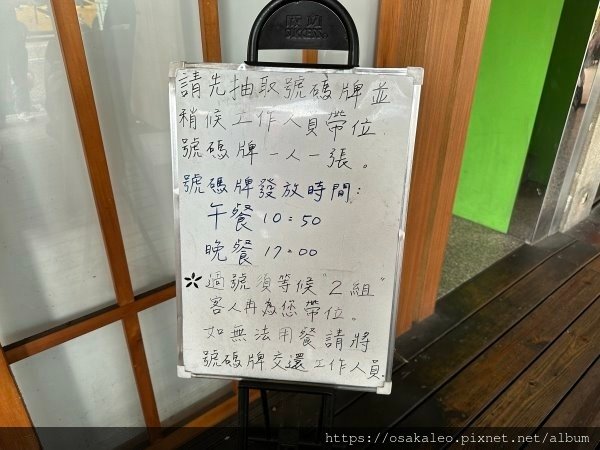 成功
SUCCESS
請先抽取號碼牌並
稍候工作人員帶位.
號碼牌一人一張。
號碼牌發放時間:
午餐 10:50
晚餐 17:00
*過號須等候"2組"
客人再為您帶位。
如無法用餐請將
號碼牌交還工作人員.
https://osakaleo.pixnet.net/album